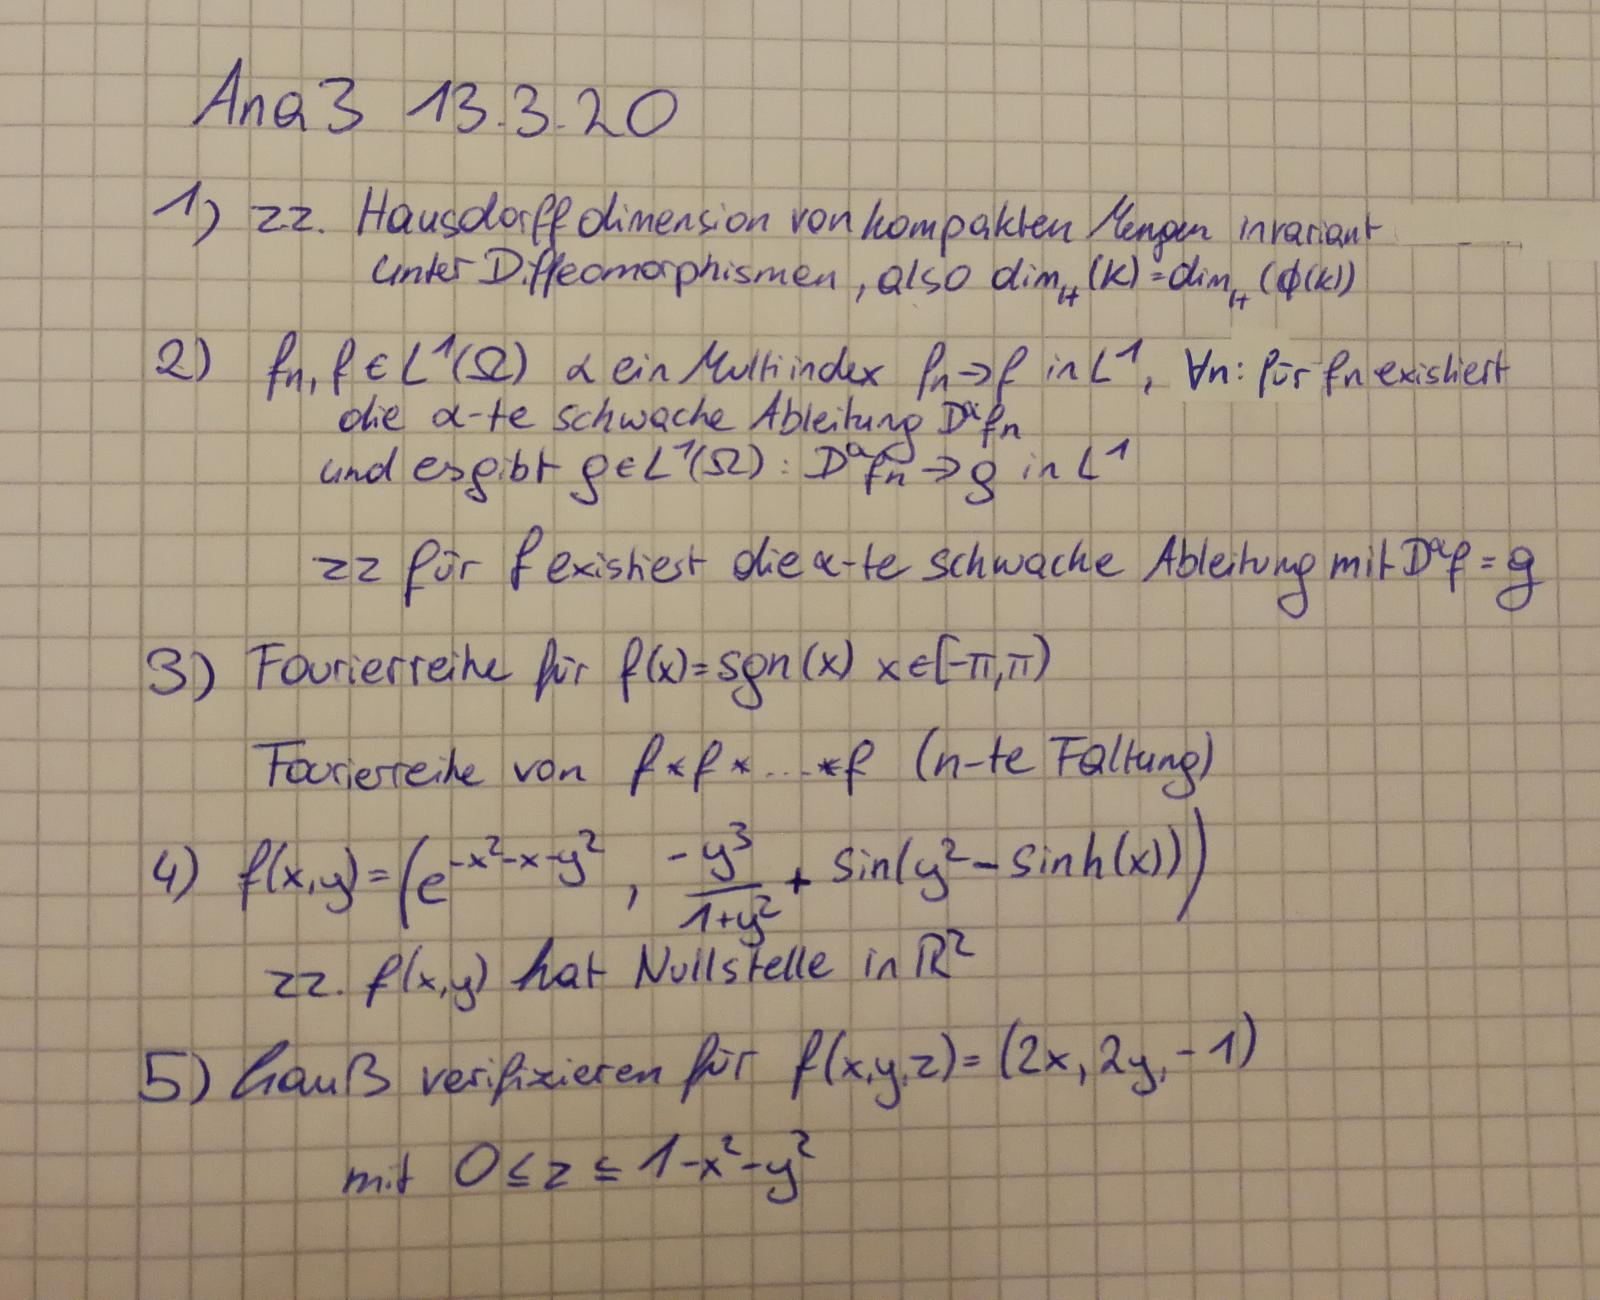 Ana3 13.3.20
1) zz. Hausdorffdimension von kompakten Mengen invariant
unter Diffeomorphismen, also dim_H (K) = dim_H (ϕ(K))
2) fn, f ∈ L¹(Ω) α ein Multiindex fn → f in L¹, ∀n: für fn existiert
die α-te schwache Ableitung Dᵅfn
und es gibt g ∈ L¹(Ω) : Dᵅfn → g in L¹
zz für f existiert die α-te schwache Ableitung mit Dᵅf = g
3) Fourierreihe für f(x) = sgn(x) x ∈ [-π,π)
Fourierreihe von f * f * ... * f (n-te Faltung)
4) f(x,y) = (e^{-x²-x-y²}, -y³/(1+y²) + sin(y² - sinh(x)))
zz. f(x,y) hat Nullstelle in ℝ²
5) Gauß verifizieren für f(x,y,z) = (2x, 2y, -1)
mit 0 ≤ z ≤ 1-x²-y²